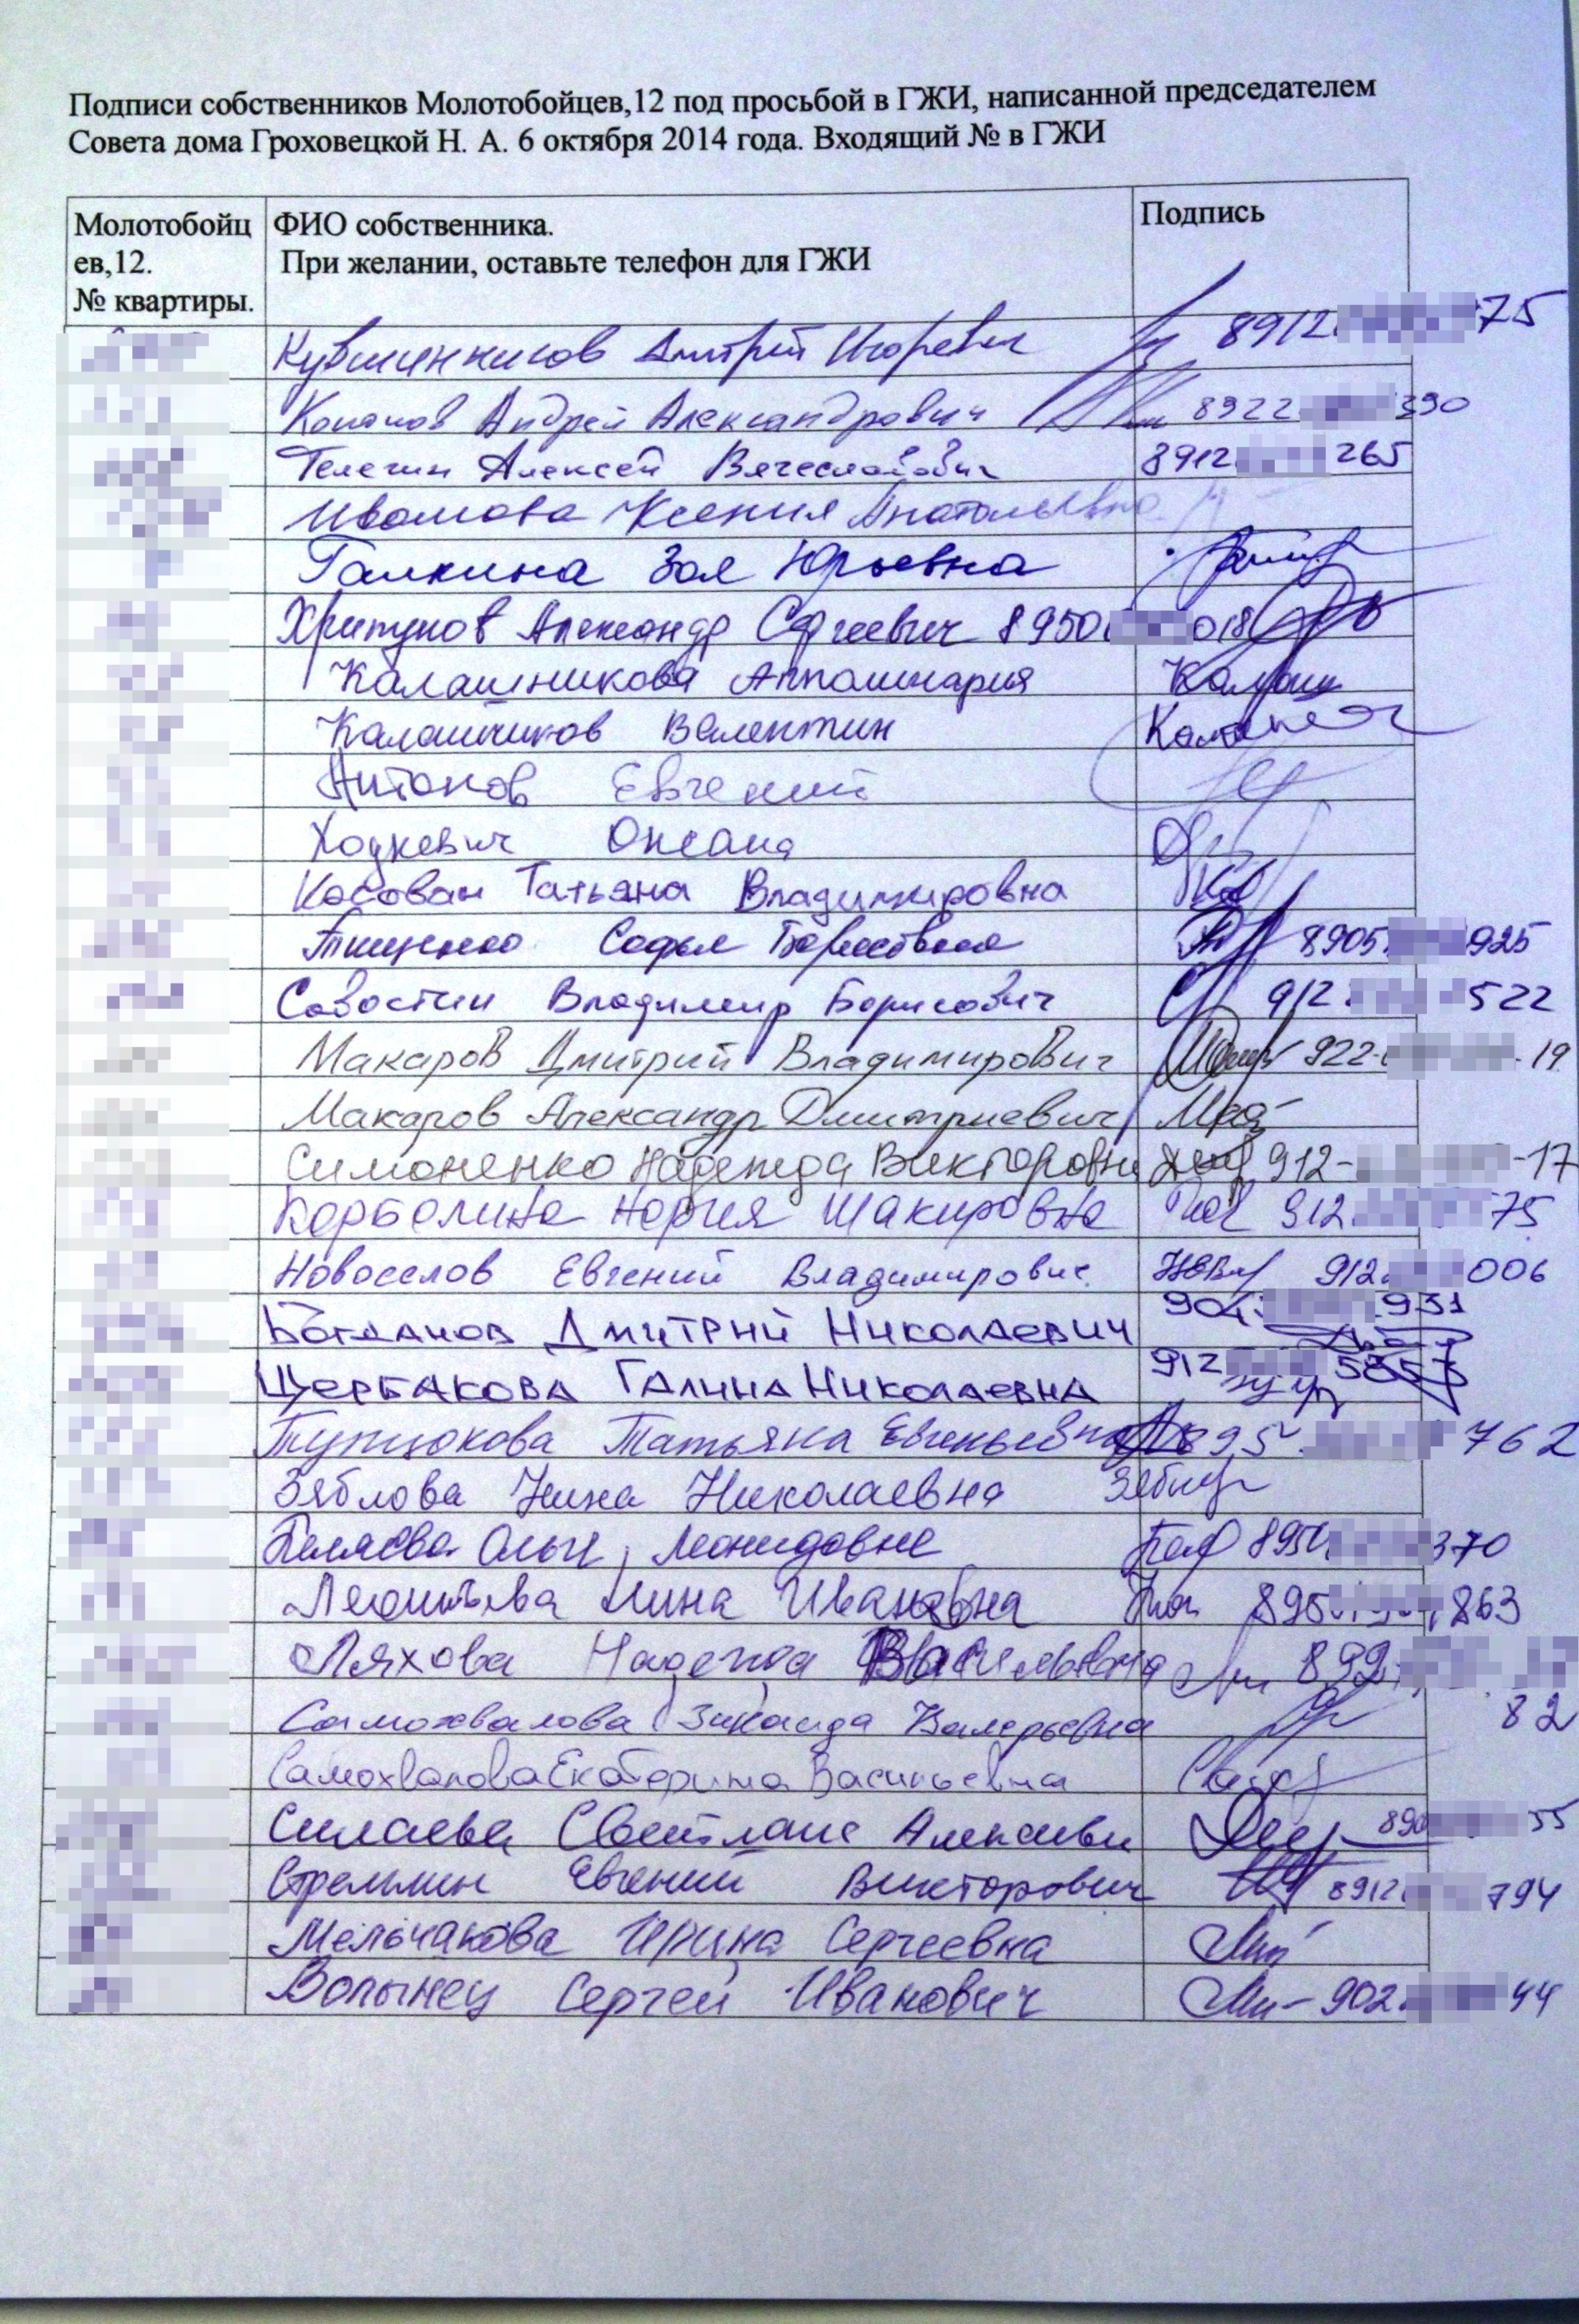 Подписи собственников Молотобойцев,12 под просьбой в ГЖИ, написанной председателем
Совета дома Гроховецкой Н. А. 6 октября 2014 года. Входящий № в ГЖИ
Молотобойц
ев,12.
№ квартиры.
ФИО собственника.
При желании, оставьте телефон для ГЖИ
Подпись
Кувшинников Дмитрий Игоревич 8912 75
Конанов Андрей Александрович 8922 390
Телегин Алексей Вячеславович 8912 265
Ивалова Ксения Анатольевна
Галкина Зоя Юрьевна
Хрипунов Александр Сергеевич 8950 018
Калашникова Аполлинария
Калашников Валентин
Антонов Евгений
Ходкевич Оксана
Косован Татьяна Владимировна
Тищенко Софья Борисовна 8905 925
Савостин Владимир Борисович 912 522
Макаров Дмитрий Владимирович 922- -19
Макаров Александр Дмитриевич
Симоненко Надежда Викторовна 912- -17
Карболина Нория Шакировна 912 75
Новоселов Евгений Владимирович 912 006
Богданов Дмитрий Николаевич 904 931
Щербакова Галина Николаевна 912
Татьяна Евгеньевна 895 762
Зяблова Нина Николаевна
Беляева Ольга Леонидовна 895 370
Леонтьева Нина Ивановна 895 863
Ляхова Надежда Васильевна 892
82
Самохвалова Зинаида Валерьевна
Самохвалова Екатерина Васильевна
Силаева Светлана 890 55
Стрелкин Евгений Викторович 8912 794
Мельчакова Ирина Сергеевна
Волынец Сергей Иванович 902 44